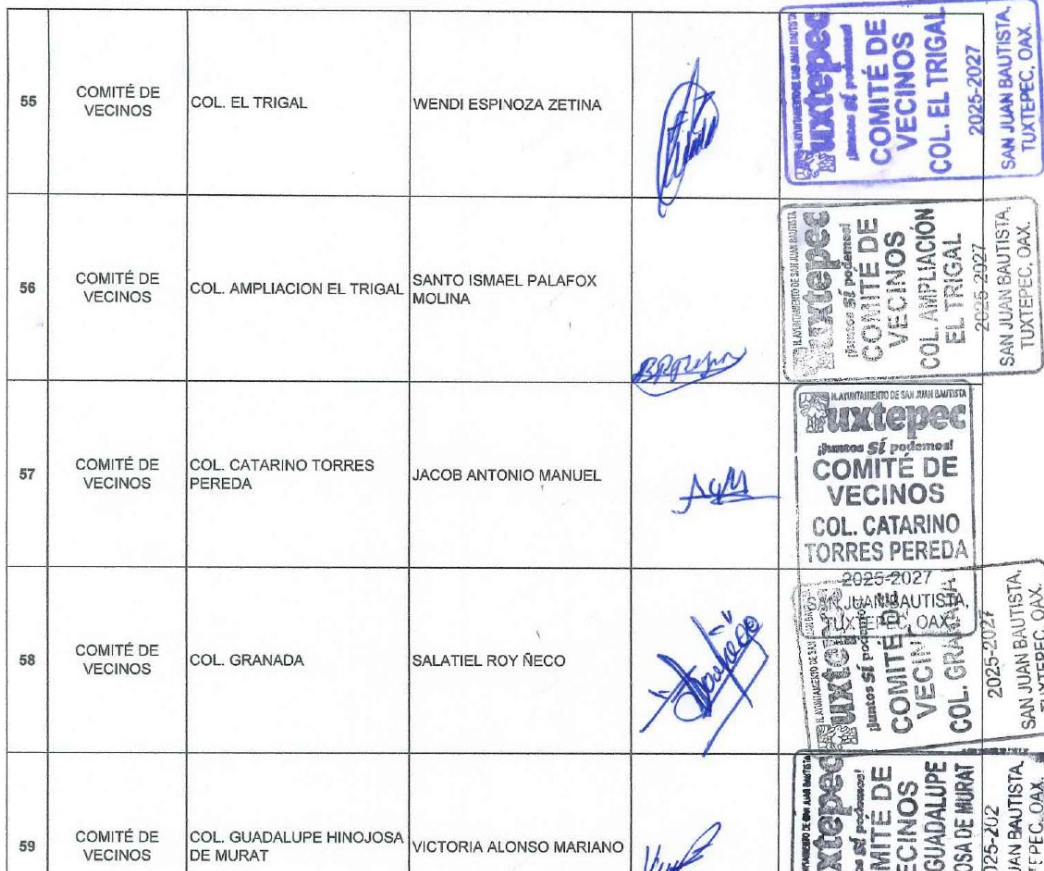 55
COMITÉ DE
VECINOS
COL. EL TRIGAL
WENDI ESPINOZA ZETINA
H. AYUNTAMIENTO DE SAN JUAN BAUTISTA
Tuxtepec
¡Juntos SÍ podemos!
COMITÉ DE
VECINOS
COL. EL TRIGAL
2025-2027
SAN JUAN BAUTISTA,
TUXTEPEC, OAX.
56
COMITÉ DE
VECINOS
COL. AMPLIACION EL TRIGAL
SANTO ISMAEL PALAFOX
MOLINA
H. AYUNTAMIENTO DE SAN JUAN BAUTISTA
Tuxtepec
¡Juntos SÍ podemos!
COMITÉ DE
VECINOS
COL. AMPLIACIÓN
EL TRIGAL
2025-2027
SAN JUAN BAUTISTA,
TUXTEPEC, OAX.
57
COMITÉ DE
VECINOS
COL. CATARINO TORRES
PEREDA
JACOB ANTONIO MANUEL
H. AYUNTAMIENTO DE SAN JUAN BAUTISTA
Tuxtepec
¡Juntos SÍ podemos!
COMITÉ DE
VECINOS
COL. CATARINO
TORRES PEREDA
2025-2027
SAN JUAN BAUTISTA,
TUXTEPEC, OAX.
58
COMITÉ DE
VECINOS
COL. GRANADA
SALATIEL ROY ÑECO
H. AYUNTAMIENTO DE SAN JUAN BAUTISTA
¡Juntos SÍ
COMITÉ DE
VECIN
COL. GRANADA
2025-2027
SAN JUAN BAUTISTA,
TUXTEPEC, OAX.
59
COMITÉ DE
VECINOS
COL. GUADALUPE HINOJOSA
DE MURAT
VICTORIA ALONSO MARIANO
xtepec
SÍ podemos!
MITÉ DE
ECINOS
GUADALUPE
OSA DE MURAT
025-202
UAN BAUTISTA,
TEPEC, OAX.